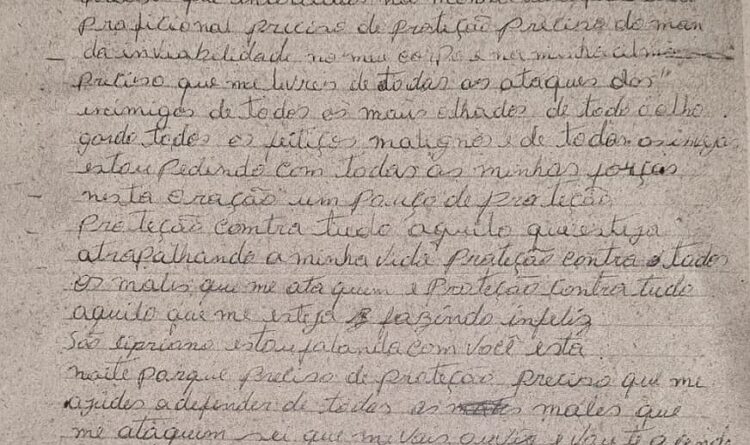 praficional preciso de proteção preciso do man
da inviabilidade no meu corpo e na minha alma
preciso que me livres de todas as ataques dos"
inimigos de todos os maus olhados de todo o olho
gordo todos os feitiços malignos e de todas as
estou pedindo com todas as minhas forças
nesta oração um pouço de proteção
proteção contra tudo aquilo que esteja
atrapalhando a minha vida proteção contra todos
os males que me ataquem e proteção contra tudo
aquilo que me esteja fazendo infeliz
São cipriano estou falando com você está
noite parque preciso de proteção preciso que me
ajudes a defender de todos os males que
me ataquem sei que me vais